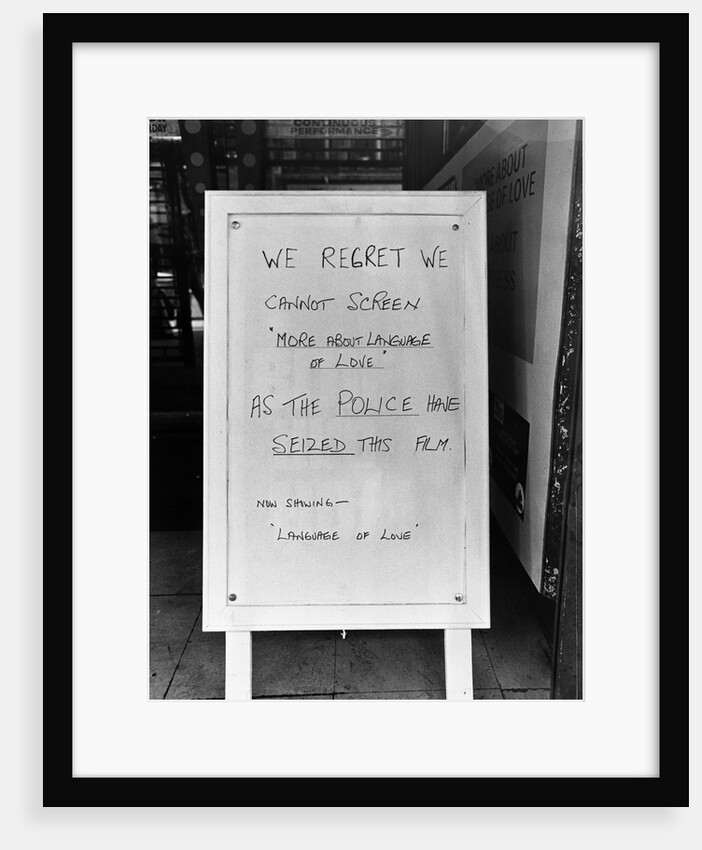 DAY
CONTINUOUS
PERFORMANCE
MORE ABOUT
OF LOVE
ABOUT
WE REGRET WE
CANNOT SCREEN
"MORE ABOUT LANGUAGE
OF LOVE"
AS THE POLICE HAVE
SEIZED THIS FILM.
NOW SHOWING—
'LANGUAGE OF LOVE'